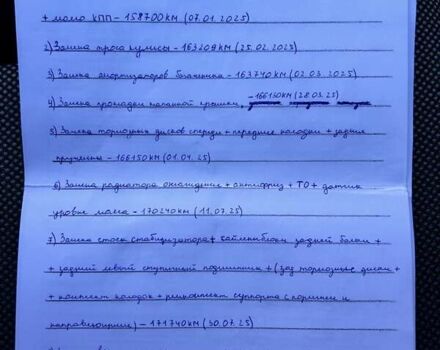 + масло КПП - 158700км (07.01.2025)
2) Замена троса кулисы - 163209км (25.02.2025)
3) Замена амортизаторов багажника - 163740км (02.03.2025)
4) Замена прокладки клапанной крышки - 166150км (28.03.25)
5) Замена тормозных дисков спереди + передние колодки + задние
пружины - 166150км (01.04.25)
6) Замена радиатора охлаждения + антифриз + ТО + датчик
уровня масла - 170240км (11.07.25)
7) Замена стоек стабилизатора + сайлентблоки задней балки +
+ задний левый ступичный подшипник + (зад тормозные диски +
+ комплект колодок + ремкомплект суппорта с поршнем и
направляющими) - 171740км (30.07.25)